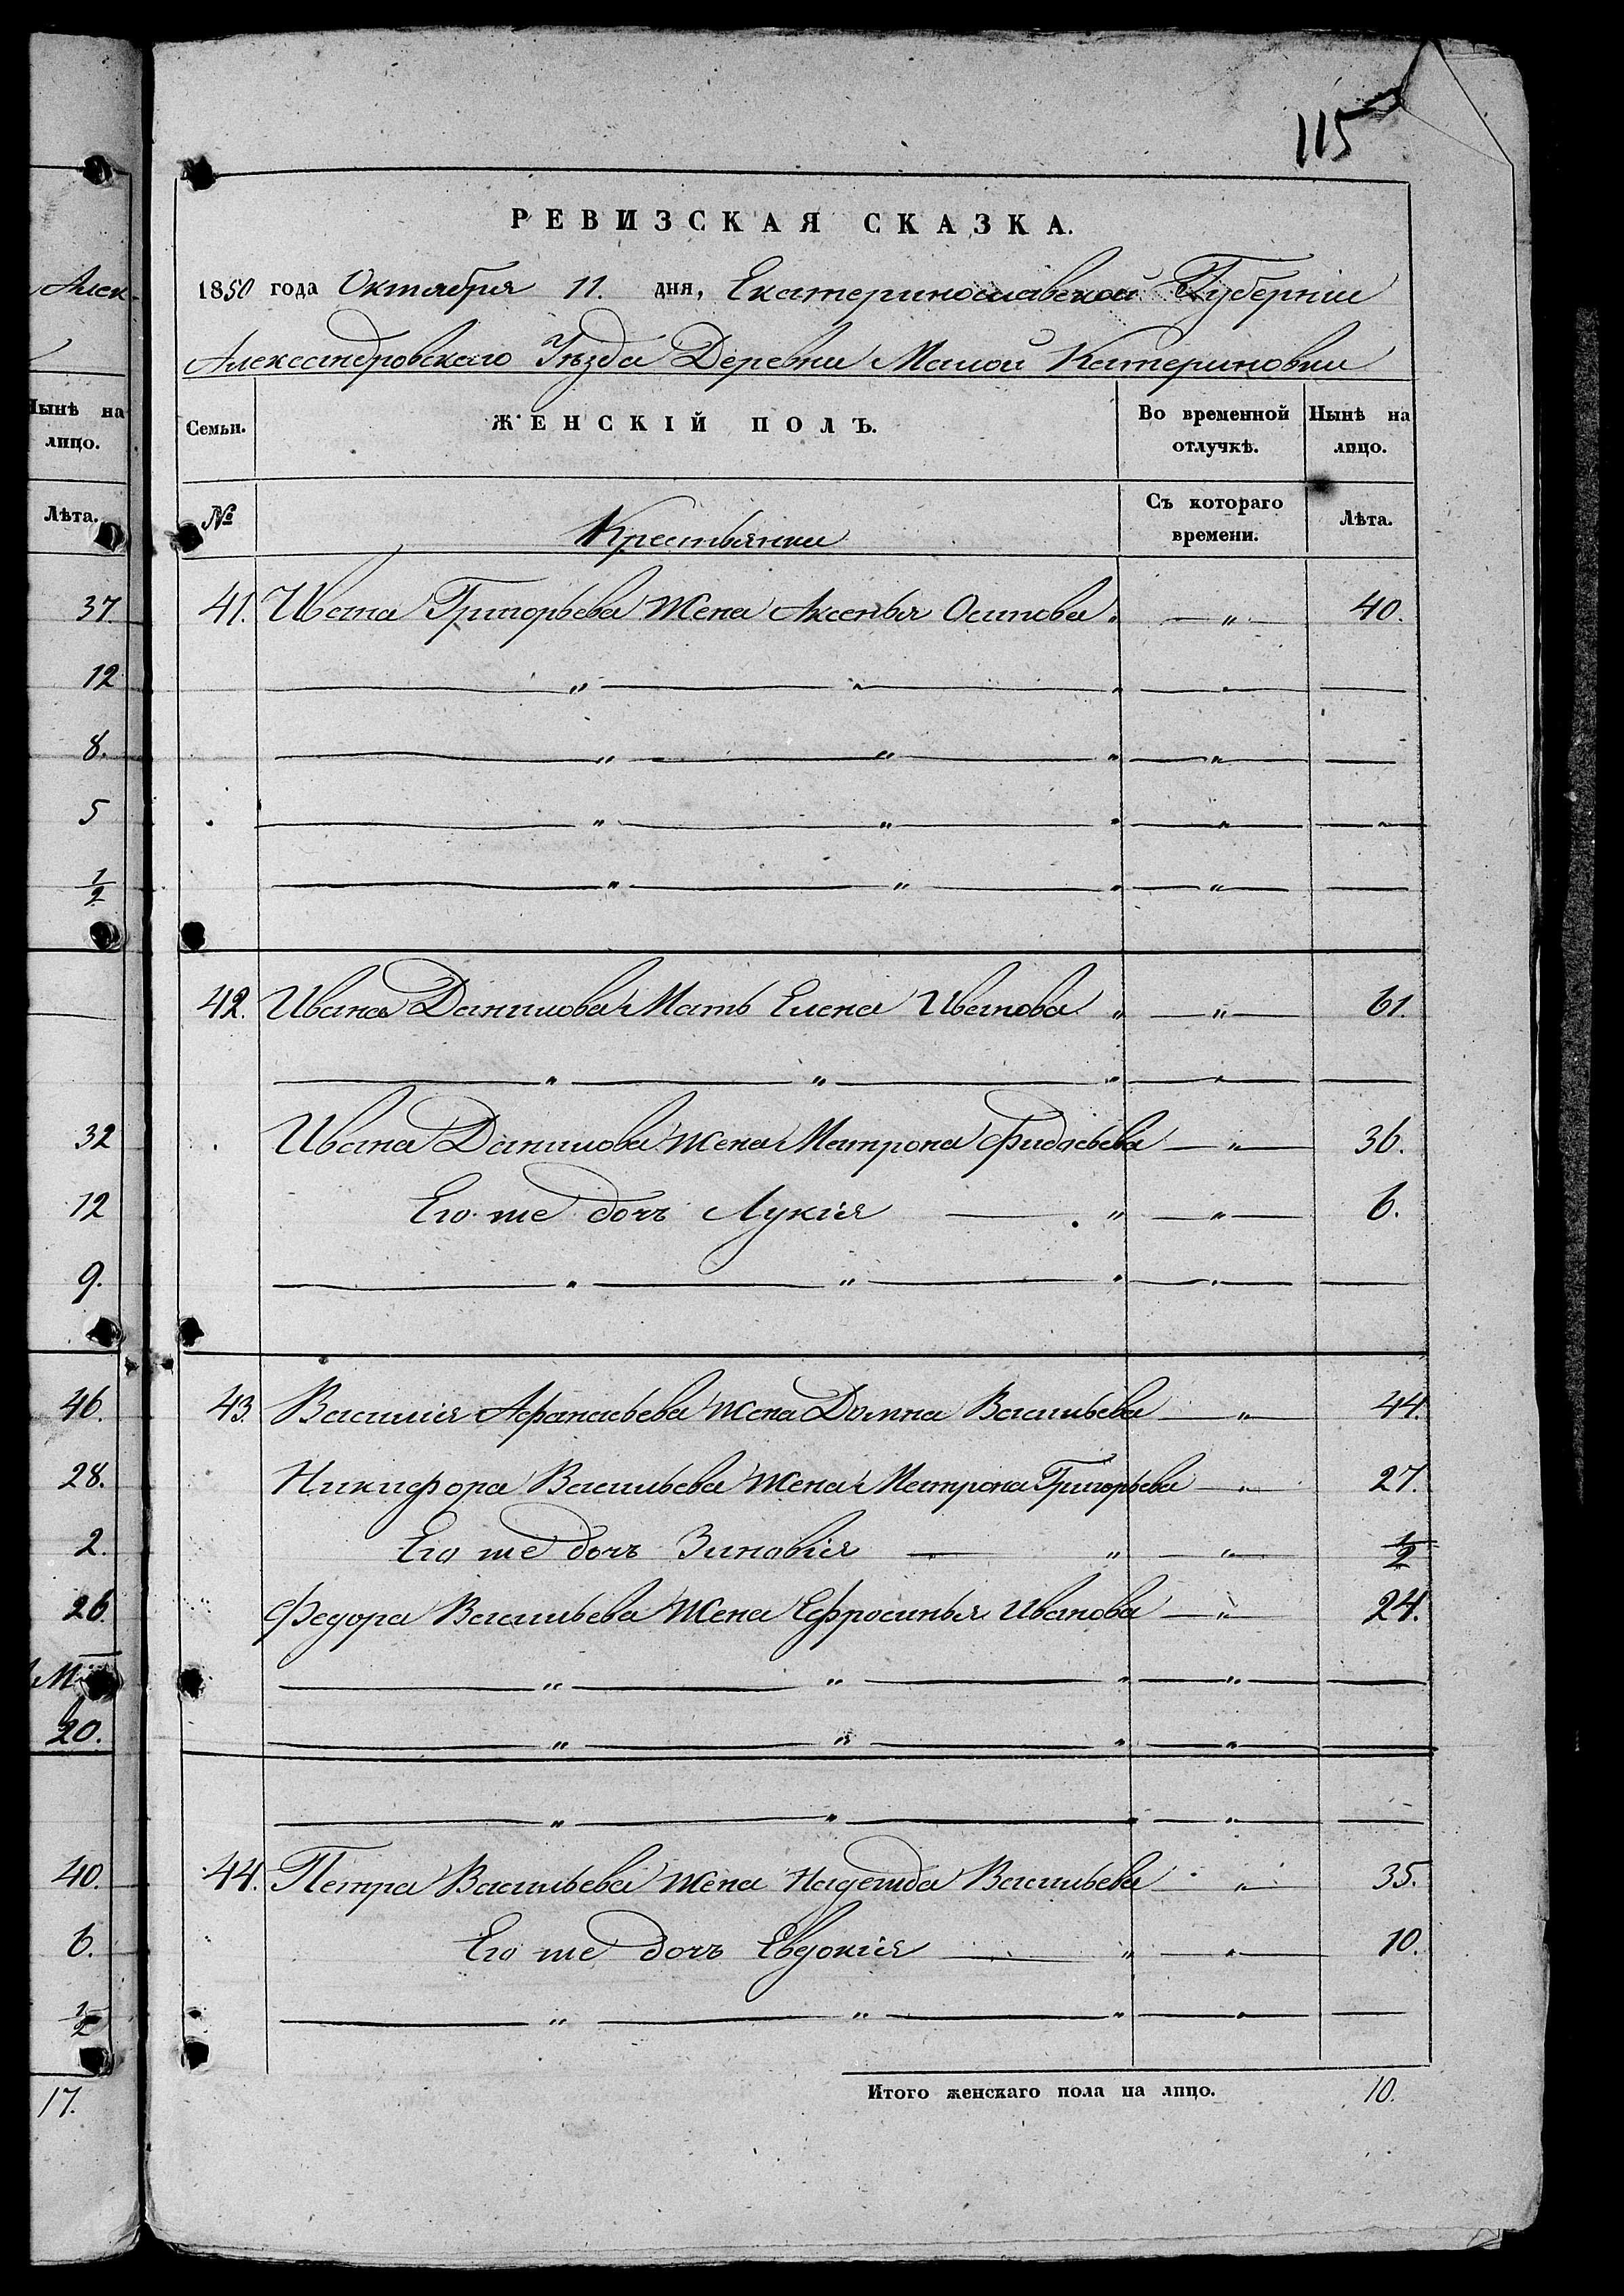 115
РЕВИЗСКАЯ СКАЗКА.
1850 года Октября 11. дня, Екатеринославской Губерніи
Александровскаго Уѣзда Деревни Малой Катериновки
Семьи.
ЖЕНСКІЙ ПОЛЪ.
Во временной отлучкѣ.
Нынѣ на лицо.
№
Крестьянки
Съ котораго времени.
Лѣта.
41. Ивана Григорьева жена Аксенья Осипова „ — „ — 40.
— „ — „ — „ — „ — —
— „ — „ — „ — „ — —
— „ — „ — „ — „ — „ —
— „ — „ — „ — „ — —
42. Ивана Данилова Мать Елена Иванова „ — „ — 61.
— „ — „ — „ — „ — —
Ивана Данилова жена Матрона — „ — 36.
Его же дочь Лукія — „ — „ — 6.
— „ — „ — „ — „ — —
43. Василія Афанасьева жена Домна Васильева — „ — 44.
Никифора Васильева жена Матрона Григорьева — „ — 27.
Его же дочь Зиновія — „ — „ — 1/2
Федора Васильева жена Ефросинья Иванова — „ — 24.
— „ — „ — „ — „ — —
— „ — „ — „ — „ — —
— „ — „ — „ — „ — —
44. Петра Васильева жена Надежда Васильева — „ — 35.
Его же дочь Евдокія — „ — „ — 10.
— „ — „ — „ — „ — —
Итого женскаго пола на лицо. 10.
Алек-
Нынѣ на
лицо.
Лѣта.
37.
12
8.
5
1/2
32
12
9.
46.
28.
2.
26.
20.
40.
6.
1/2
17.